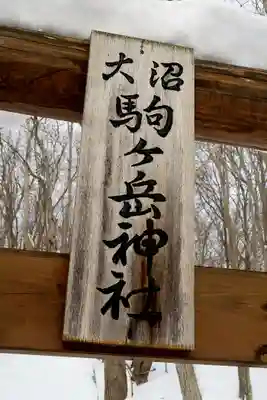 大沼
駒ヶ岳神社